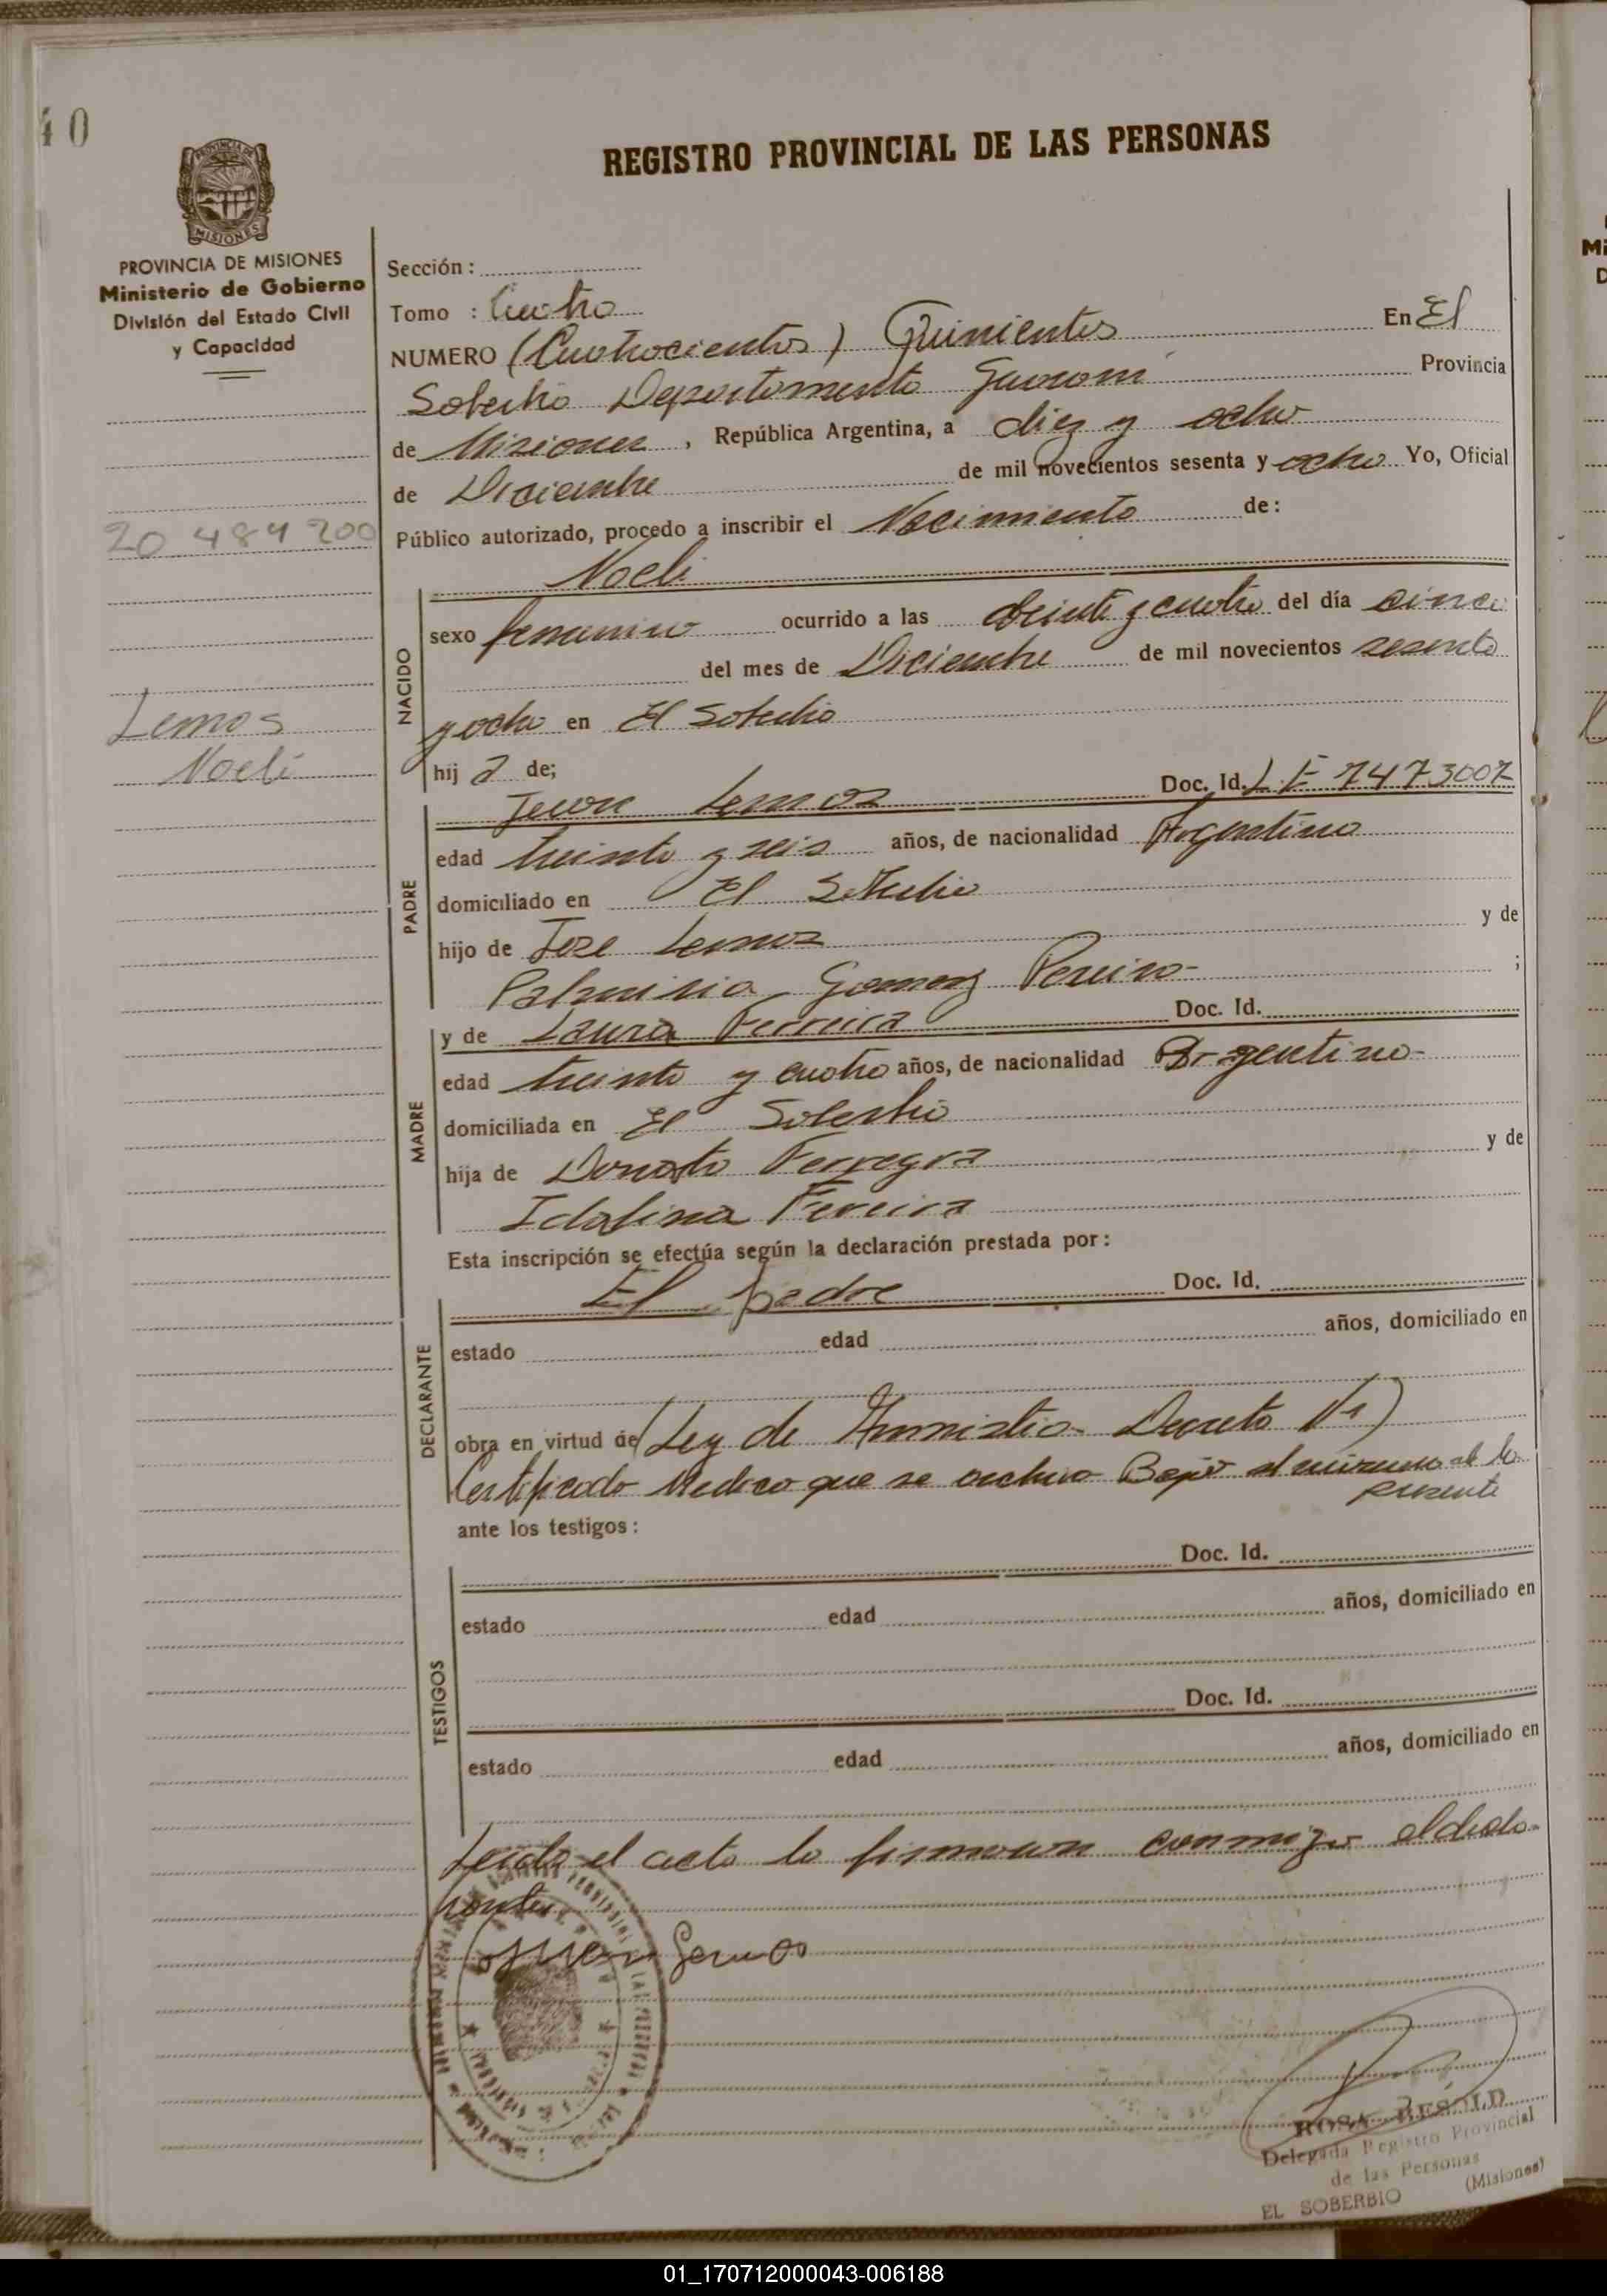 40
REGISTRO PROVINCIAL DE LAS PERSONAS
MISIONES
PROVINCIA DE MISIONES
Ministerio de Gobierno
División del Estado Civil
y Capacidad
20 484 200
Lemos
Noeli
Sección :
Tomo : Cuatro
NUMERO (Cuatrocientos) Quinientos En El
Soberbio Departamento Guarani Provincia
de Misiones , República Argentina, a diez y ocho
de Diciembre de mil novecientos sesenta y ocho Yo, Oficial
Público autorizado, procedo a inscribir el Nacimiento de:
NACIDO
Noeli
sexo femenino ocurrido a las veinte y cuatro del día cinco
del mes de Diciembre de mil novecientos sesenta
y ocho en El Soberbio
hij a de;
PADRE
Juan Lemos Doc. Id. L.E 7473007
edad treinta y seis años, de nacionalidad Argentino
domiciliado en El Soberbio
hijo de Jose Lemos y de
Palmiria Gomez Pereira ;
MADRE
y de Laura Ferreira Doc. Id.
edad treinta y cuatro años, de nacionalidad Argentina
domiciliada en El Soberbio
hija de Donato Ferreyra y de
Idalina Fereira
Esta inscripción se efectúa según la declaración prestada por :
DECLARANTE
El padre Doc. Id.
estado edad años, domiciliado en
obra en virtud de (Ley de Amnistia Decreto
Certificado Medico que se archiva Bajo el numero de la
presente
ante los testigos :
TESTIGOS
Doc. Id.
estado edad años, domiciliado en
Doc. Id.
estado edad años, domiciliado en
Leida el acta la firmaron conmigo el decla-
rante
Juan Lemos
ROSA BESOLD
Delegada Registro Provincial
de las Personas
EL SOBERBIO (Misiones)
01_170712000043-006188